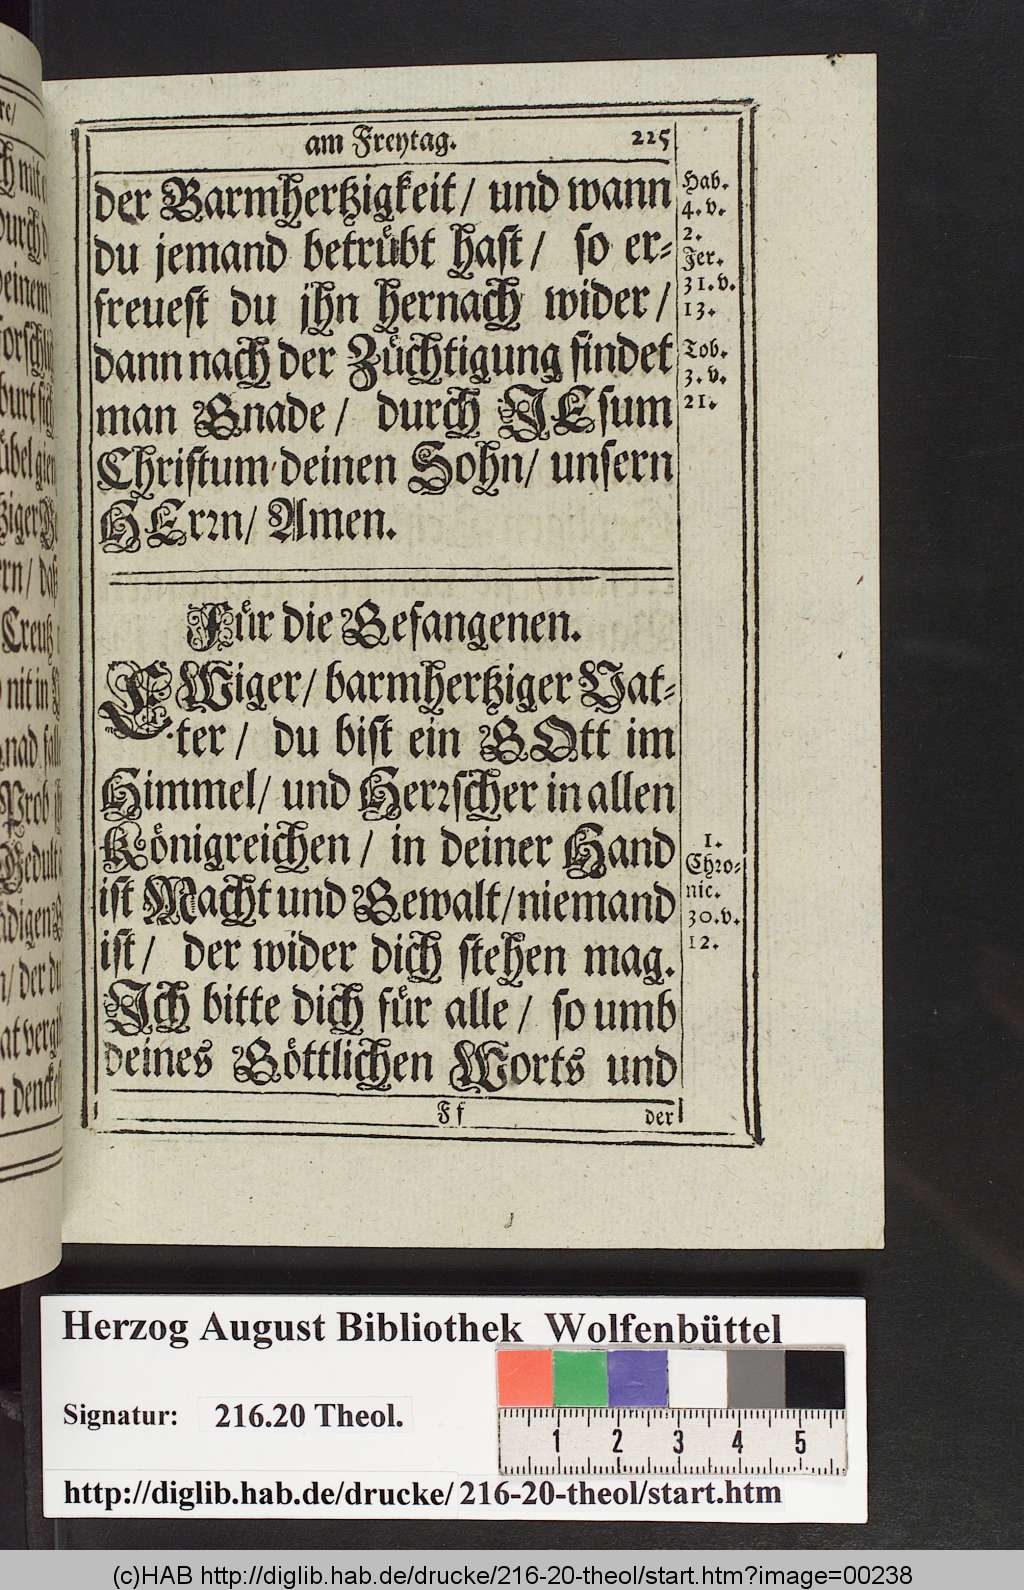 am Freytag. 225
der Barmhertzigkeit / und wann
du jemand betrübt hast / so er-
freuest du jhn hernach wider /
dann nach der Züchtigung findet
man Gnade / durch JEsum
Christum deinen Sohn / unsern
HErrn / Amen.
Hab.
4. v.
2.
Jer.
31. v.
13.
Tob.
3. v.
21.
Für die Gefangenen.
EWiger / barmhertziger Vat-
ter / du bist ein GOtt im
Himmel / und Herrscher in allen
Königreichen / in deiner Hand
ist Macht und Gewalt / niemand
ist / der wider dich stehen mag.
Ich bitte dich für alle / so umb
deines Göttlichen Worts und
1.
Chro-
nic.
30. v.
12.
Ff der
Herzog August Bibliothek Wolfenbüttel
Signatur: 216.20 Theol.
1 2 3 4 5
http://diglib.hab.de/drucke/216-20-theol/start.htm
(c)HAB http://diglib.hab.de/drucke/216-20-theol/start.htm?image=00238